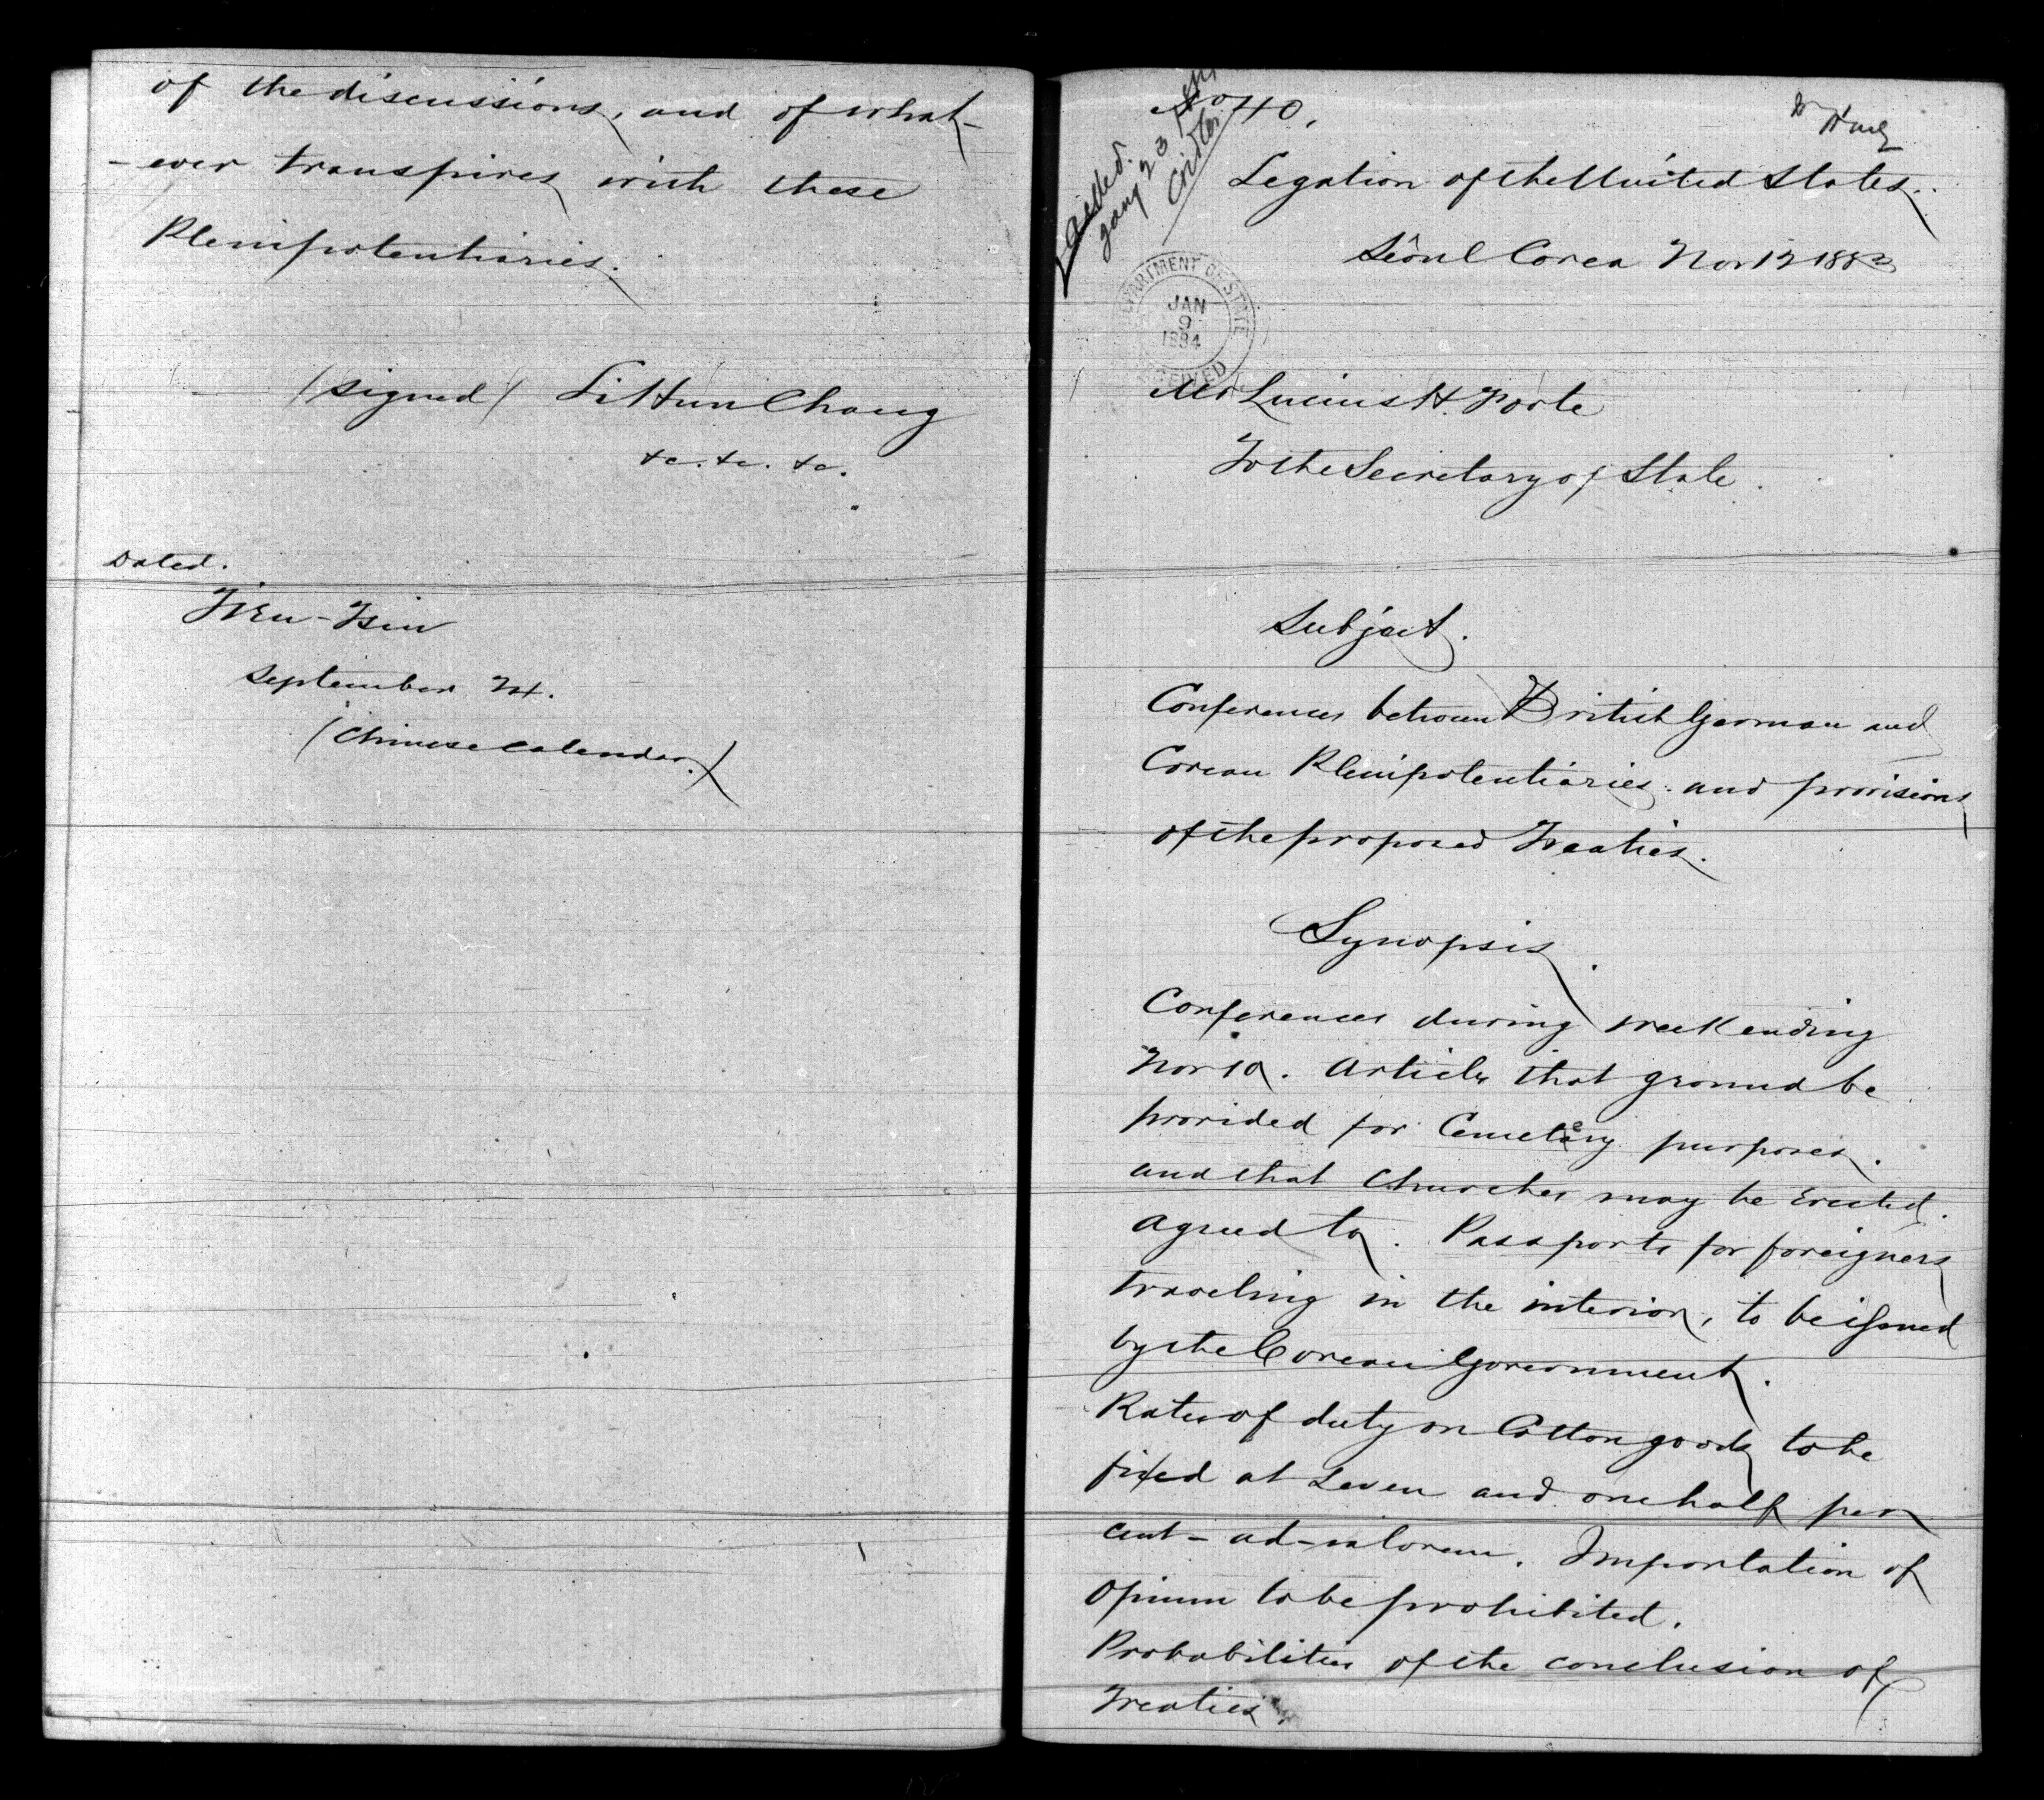 of the discussions, and of what-
-ever transpires with these
Plenipotentiaries.
(signed) Li Hun Chang
&c. &c. &c.
Dated.
Tien-Tsin
September 24.
(Chinese Calendar.)
No 40.
Legation of the United States.
Sêoul Corea Nov 12 1883
Jany 23
Cridler
DEPARTMENT OF STATE
JAN
9
1884
RECEIVED
Mr Lucius H. Foote
To the Secretary of State.
Subject.
Conferences between British German and
Corean Plenipotentiaries. and provisions
of the proposed Treaties.
Synopsis.
Conferences during week ending
Nov 10. Articles that ground be
provided for Cemetery purposes.
and that Churches may be Erected.
agreed to. Passports for foreigners
traveling in the interior, to be issued
by the Corean Government.
Rates of duty on Cotton goods to be
fixed at seven and one half per
cent - ad-valorem. Importation of
Opium to be prohibited.
Probabilities of the conclusion of
Treaties.